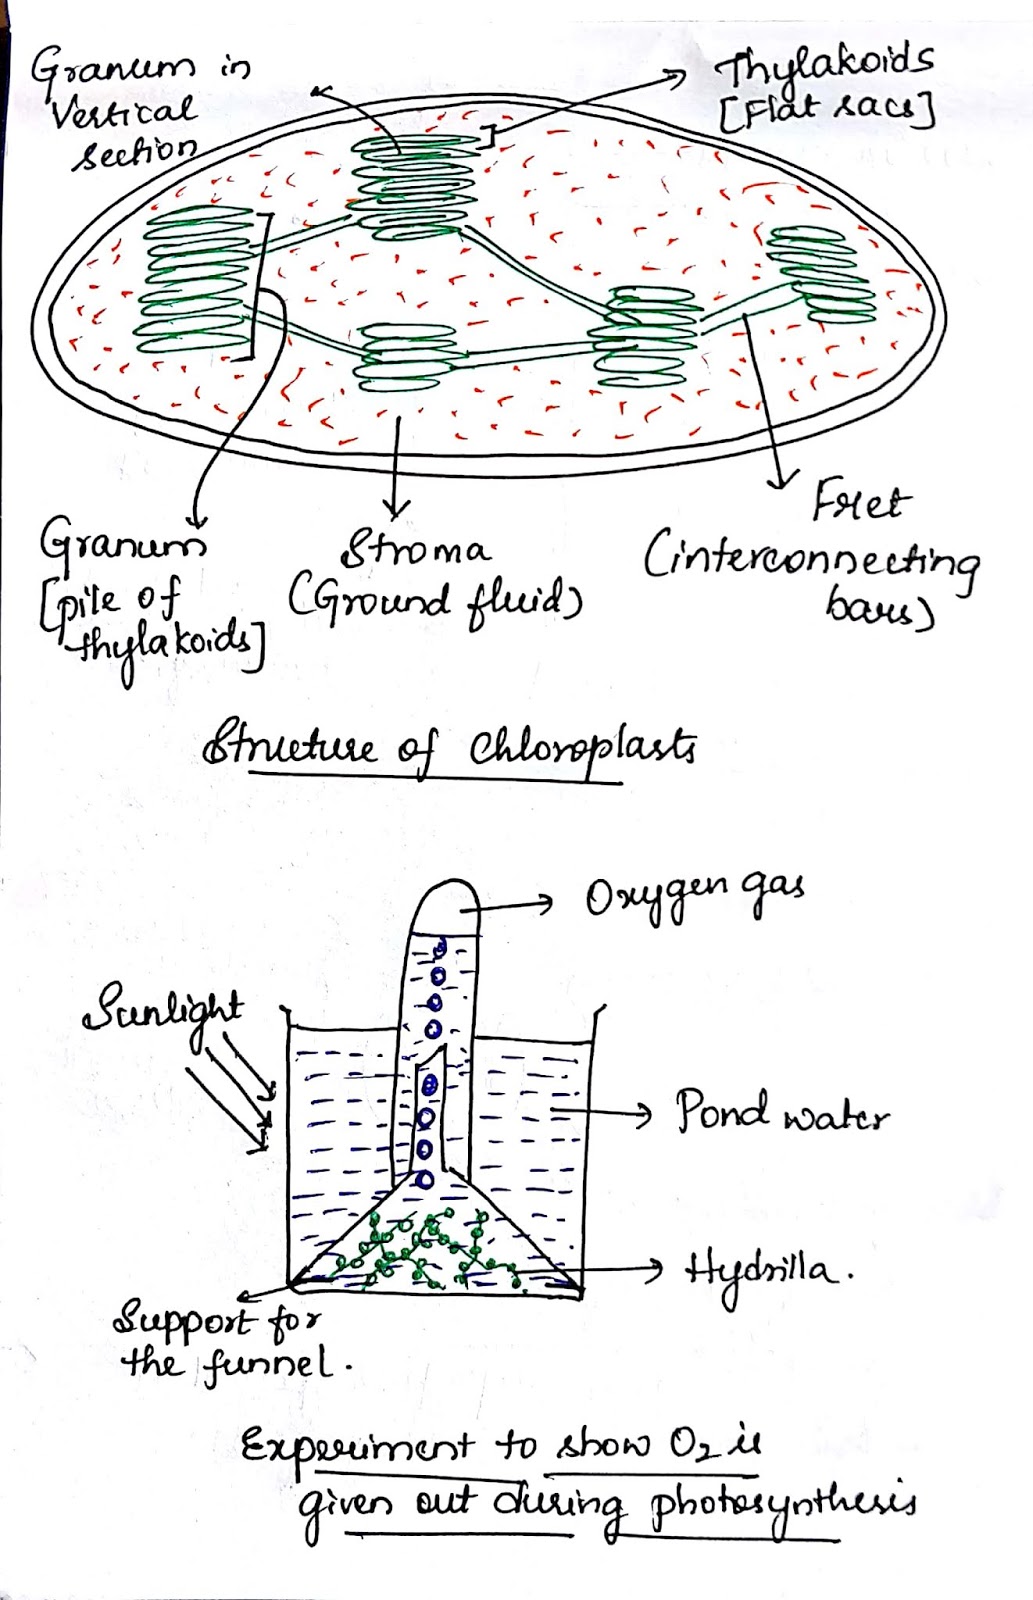 Granum in
Vertical
section
Thylakoids
[Flat sacs]
Granum
[pile of
thylakoids]
Stroma
(Ground fluid)
Fret
(interconnecting
bars)
Structure of Chloroplasts
Oxygen gas
Sunlight
Pond water
Hydrilla.
Support for
the funnel.
Experiment to show O₂ is
given out during photosynthesis